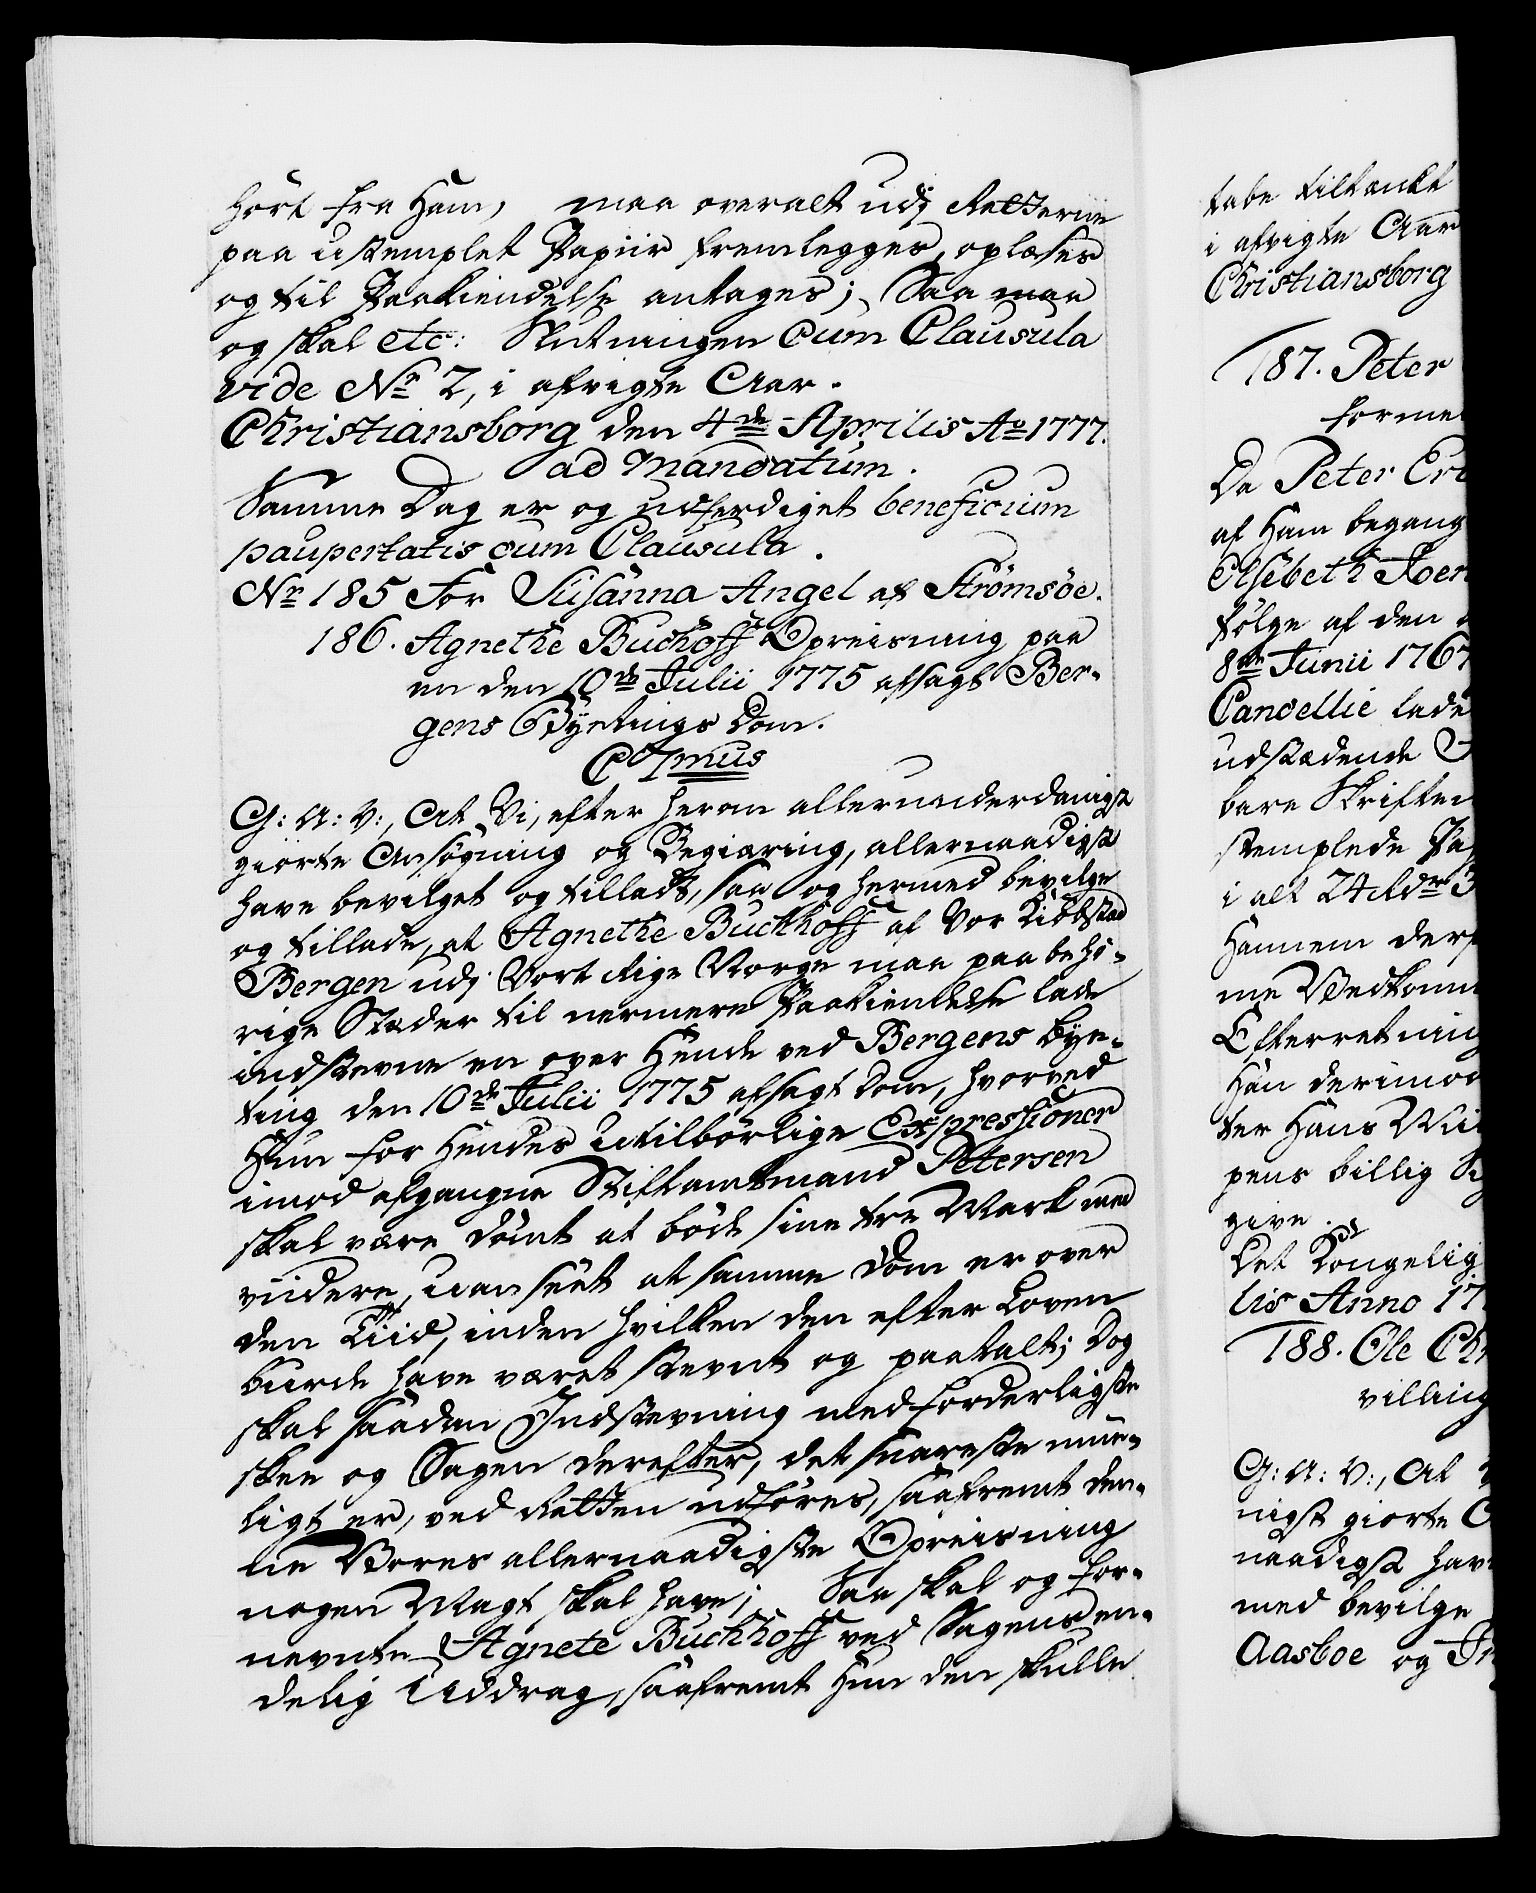 hört fra Ham, maa overalt udj Retterne
paa ustemplet Papiir fremlegges, oplæses
og til Paakiendelse antages; Saa maa
og skal etc: Slutningen Cum Clausula
vide No 2, i afvigte Aar.
Christiansborg den 4de Aprilis Ao 1777.
ad Mandatum.
Samme Dag er og udferdiget beneficium
paupertatis cum Clausula.
No 185 For Susanna Angel af Strømsöe.
186. Agnethe Buchhoff Opreisning paa
en den 10de Julii 1775 afsagt Ber-
gens Byetings Dom.
C7mus
G: A: V:, At Vi, efter herom allerunderdanigst
giorte Ansøgning og Begiæring, allernaadigst
have bevilget og tilladt, saa og hermed bevilge
og tillade, at Agnethe Buckhoff af Vor Kiöbstad
Bergen udj Vort Rige Norge maa paa behö-
rige Stæder til nermere Paakiendelse lade
indstevne en over Hende ved Bergens Bye-
ting den 10de Julii 1775 afsagt Dom, hvorved
Hun for Hendes Utilbörlige Expressioner
imod afgangne Stiftamtmand Petersen
skal være dömt at böde sine tre Mark med
viidere, uanseet at samme Dom er over
den Tiid, inden hvilken den efter Loven
burde have været stevnt og paatalt; Dog
skal saadan Indstevning med forderligste
skee og Sagen derefter, det snareste mue-
ligt er, ved Retten udföres, saafremt den-
ne Vores allernaadigste Opreisning
nogen Magt skal have; Saa skal og for-
nevnte Agnete Buchhoff ved Sagens en-
delig Uddrag, saafremt Hun den skulle
tabe tiltænkt
i afvigte Aar
Christiansborg
187. Peter
forme
Da Peter Er
af Ham begang
Elsebeth Joen
følge af den
8de Junii 1767
Cancellie lade
udstædende
bare Skrifter
stemplede Pa
i alt 24 Rdr 3
Hannem der
me Vedkom
Efterretning
Han derimod
ter Hans Vil
pens billig
give.
Det Kongelig
lis Anno 17
188. Ole Ch
villing
G: A: V:, At
nigst giorte
naadigst hav
med bevilge
Aasboe og